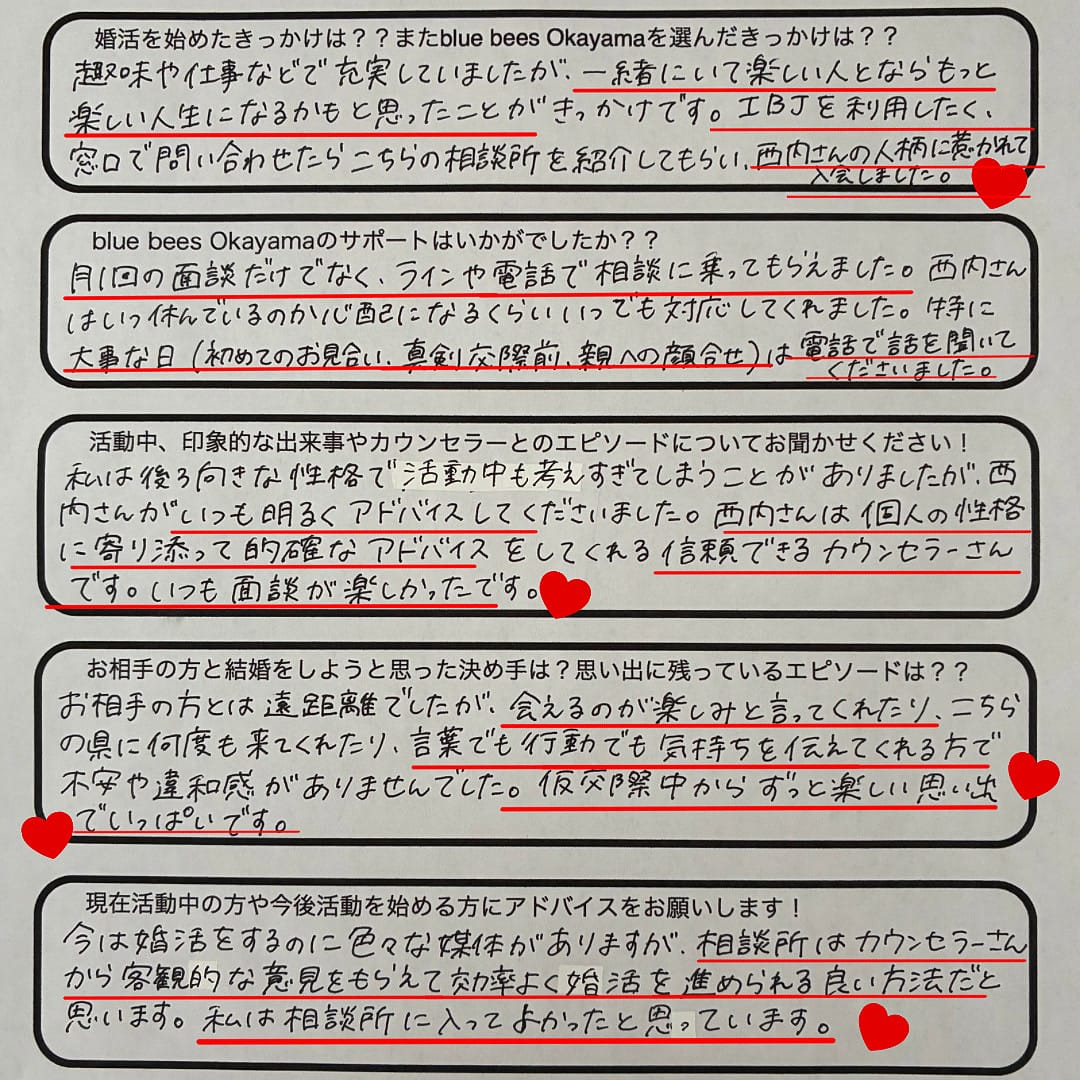 婚活を始めたきっかけは？？またblue bees Okayamaを選んだきっかけは？？
趣味や仕事などで充実していましたが、一緒にいて楽しい人とならもっと
楽しい人生になるかもと思ったことがきっかけです。IBJを利用したく、
窓口で問い合わせたらこちらの相談所を紹介してもらい、西内さんの人柄に惹かれて
入会しました。
blue bees Okayamaのサポートはいかがでしたか？？
月1回の面談だけでなく、ラインや電話で相談に乗ってもらえました。西内さん
はいつ休んでいるのか心配になるくらいいつでも対応してくれました。特に
大事な日（初めてのお見合い、真剣交際前、親への顔合せ）は電話で話を聞いて
くださいました。
活動中、印象的な出来事やカウンセラーとのエピソードについてお聞かせください！
私は後ろ向きな性格で活動中も考えすぎてしまうことがありましたが、西
内さんがいつも明るくアドバイスしてくださいました。西内さんは個人の性格
に寄り添って的確なアドバイスをしてくれる信頼できるカウンセラーさん
です。いつも面談が楽しかったです。
お相手の方と結婚をしようと思った決め手は？思い出に残っているエピソードは？？
お相手の方とは遠距離でしたが、会えるのが楽しみと言ってくれたり、こちら
の県に何度も来てくれたり、言葉でも行動でも気持ちを伝えてくれる方で
不安や違和感がありませんでした。仮交際中からずっと楽しい思い出
でいっぱいです。
現在活動中の方や今後活動を始める方にアドバイスをお願いします！
今は婚活をするのに色々な媒体がありますが、相談所はカウンセラーさん
から客観的な意見をもらえて効率よく婚活を進められる良い方法だと
思います。私は相談所に入ってよかったと思っています。